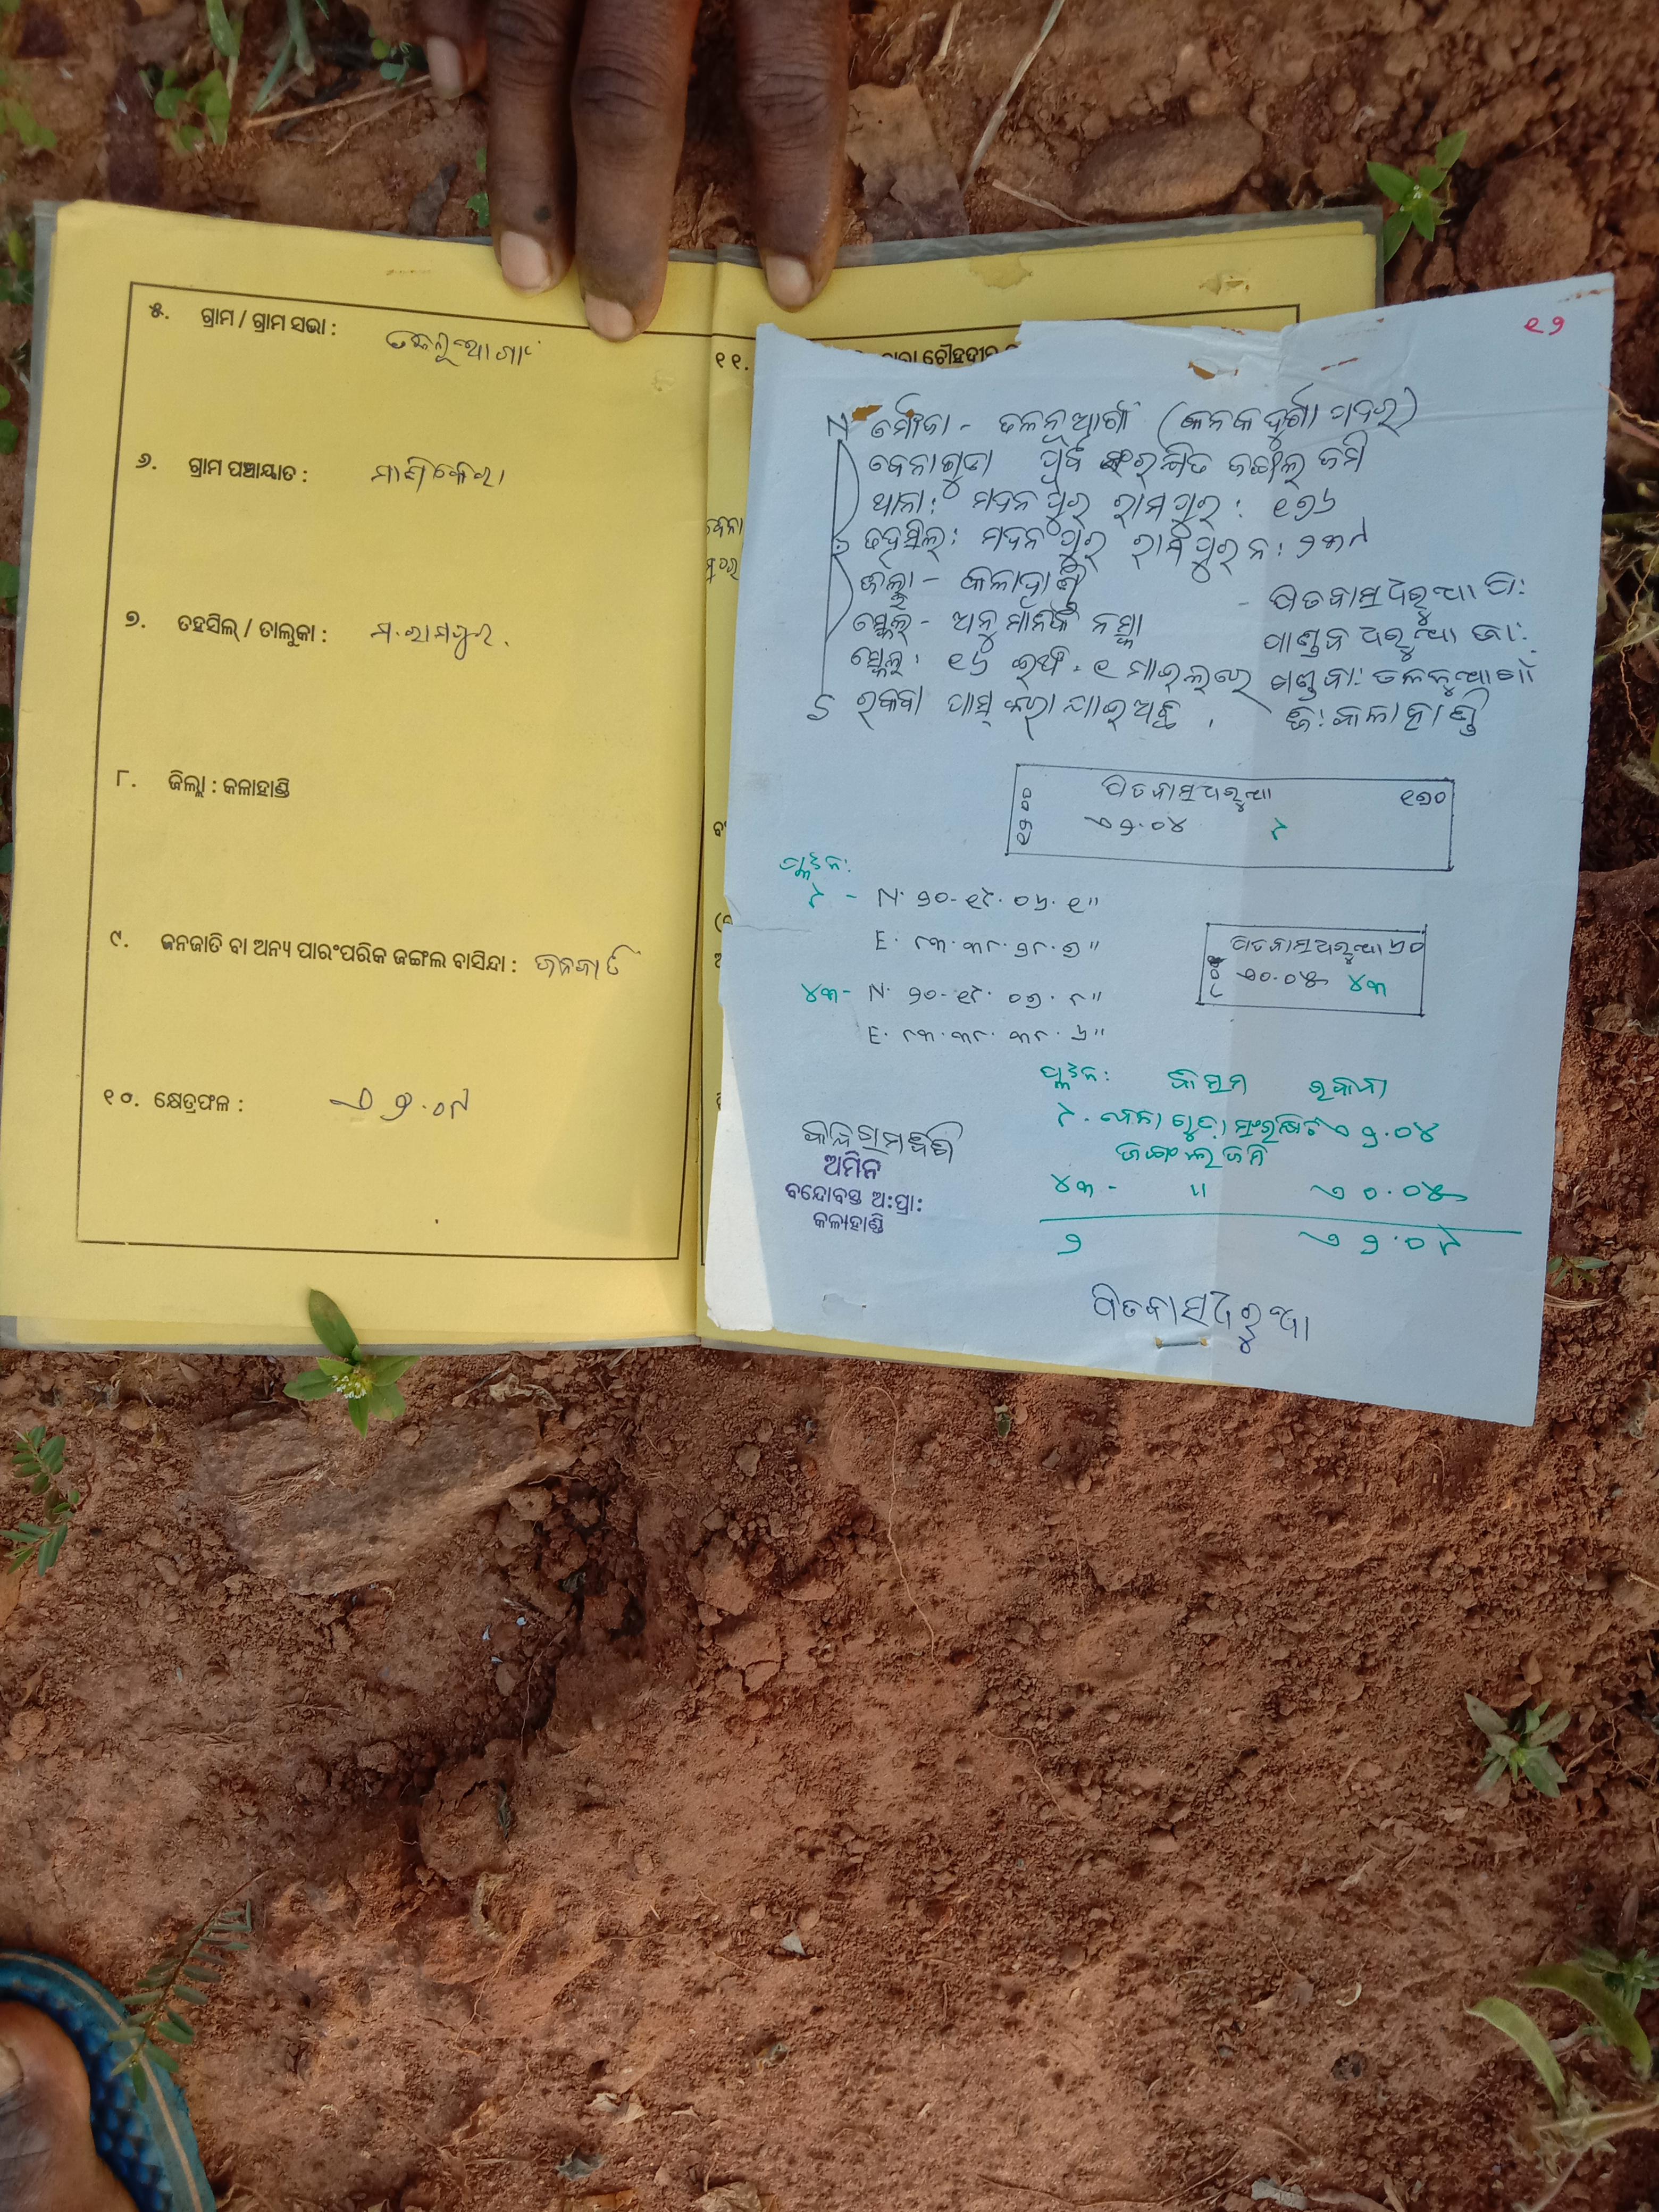 ୫. ଗ୍ରାମ / ଗ୍ରାମ ସଭା :
୬. ଗ୍ରାମ ପଞ୍ଚାୟାତ : ମାଣିକେରା
୭. ତହସିଲ୍ / ତାଲୁକା : ମ.ରାମପୁର.
୮. ଜିଲ୍ଲା : କଳାହାଣ୍ଡି
୯. ଜନଜାତି ବା ଅନ୍ୟ ପାରଂପରିକ ଜଙ୍ଗଲ ବାସିନ୍ଦା : ଜନଜାତି
୧୦. କ୍ଷେତ୍ରଫଳ : ୨.୦୯
୧୧. ଚୌହଦୀର
୧୨
N ମୌଜା - (କନକଦୁର୍ଗା ପଦର)
ବେନାଗୁଡା ପୂର୍ବ ସଂରକ୍ଷିତ ଜଙ୍ଗଲ ଜମି
ଥାନା: ମଦନପୁର ରାମପୁର: ୧୭୬
ତହସିଲ: ମଦନପୁର ରାମପୁର ନ: ୨୩୯
ଜିଲ୍ଲା - କଳାହାଣ୍ଡି
ସ୍କେଲ - ଅନୁମାନିକ ନକ୍ସା
ସ୍କେଲ: ୧୬ ଇଞ୍ଚ = ୧ ମାଇଲରେ
S ରକବା ପାସ୍ କରାଯାଇଅଛି.
- ପିତବାସ ଧରୁଆ ପି:
ପାଣ୍ଡବ ଧରୁଆ ଜା:
ଜି: କଳାହାଣ୍ଡି
ପିତବାସ ଧରୁଆ ୧୭୦
୨.୦୪ ୯
ପ୍ଲଟନ:
୯ - N. ୨୦- ୧୯. ୦୬. ୧"
E. ୮୩. ୩୮. ୨୮. ୭"
୪୩- N. ୨୦- ୧୯. ୦୭. ୮"
E. ୮୩. ୩୮. ୩୮. ୬"
ପିତବାସ ଧରୁଆ ୬୦
୦.୦୫ ୪୩
ପ୍ଲଟନ: କିସମ ରକବା
୯. ବେନାଗୁଡା ସଂରକ୍ଷିତ ୨.୦୪
ଜଙ୍ଗଲ ଜମି
୪୩ - " ୦.୦୫
୨ ୨.୦୯
ଅମିନ
ବନ୍ଦୋବସ୍ତ ଅ:ପ୍ରା:
କଳାହାଣ୍ଡି
ପିତବାସ ଧରୁଆ